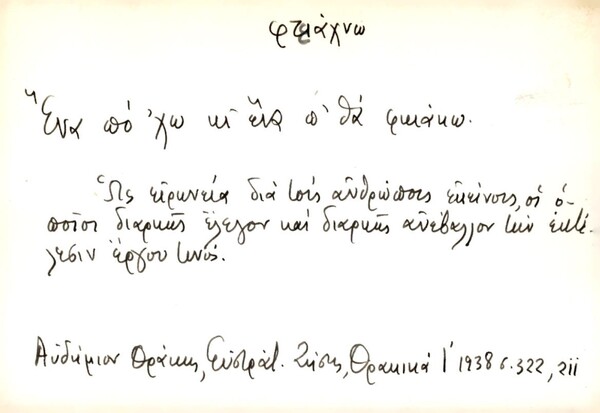 φτειάχνω
Ἕνα πὄ 'χω κι ἕνα π' θά φτειάκω.
Ὡς εἰρωνεία διά τούς ἀνθρώπους ἐκείνους, οἱ ὁ-
ποῖοι διαρκῶς ἔλεγον καί διαρκῶς ἀνέβαλλον τήν ἐκτέ-
λεσιν ἔργου τινός.
Αὐδήμιον Θράκης, Εὐστράτ. Ζήσης, Θρακικά Ι' 1938 σ. 322, 211